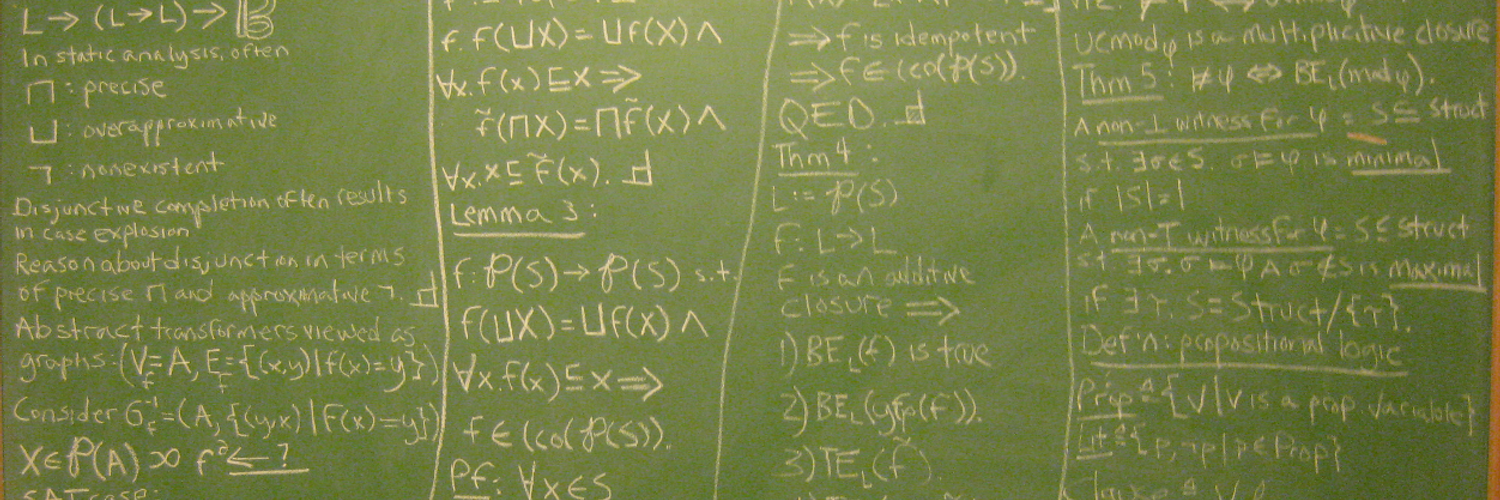 L → (L→L) → 𝔹
In static analysis, often
⊓ : precise
⊔ : overapproximative
¬ : nonexistent
Disjunctive completion often results
in case explosion
Reason about disjunction in terms
of precise ⊓ and approximative ¬. ⊣
Abstract transformers viewed as
graphs: (V_f=A, E_f={(x,y)|f(x)=y})
Consider G_f^-1=(A, {(y,x)|F(x)=y})
X∈℘(A) ∞ f ← ?
SAT case:
f. f(⊔X) = ⊔f(X) ∧
∀x. f(x) ⊑ x ⇒
f̃(⊓X) = ⊓f̃(X) ∧
∀x. x ⊑ f̃(x). ⊣
Lemma 3 :
f: ℘(S) → ℘(S) s.t.
f(⊔X) = ⊔f(X) ∧
∀x. f(x) ⊑ x ⇒
f ∈ lco(℘(S)).
Pf: ∀x∈S
⇒ f is idempotent
⇒ f ∈ lco(℘(S)).
QED. ⊣
Thm 4 :
L := ℘(S)
f: L→L
f is an additive
closure ⇒
1) BE_L(f) is true
2) BE_L(gfp(f)).
3) TE_L(f̃).
ucmod_φ is a multiplicitive closure
Thm 5 : ⊭φ ⇔ BE_L(mod φ).
A non-⊥ witness for φ = S ⊆ Struct
s.t. ∃σ∈S. σ⊨φ is minimal
if |S|=1
A non-⊤ witness for φ = S ⊆ Struct
s.t. ∃σ. σ⊨φ ∧ σ∉S is maximal
if ∃τ. S = Struct/{τ}.
Def'n: propositional logic
Prop ≙ {v|v is a prop. variable}
Lit ≙ {p, ¬p | p∈Prop}